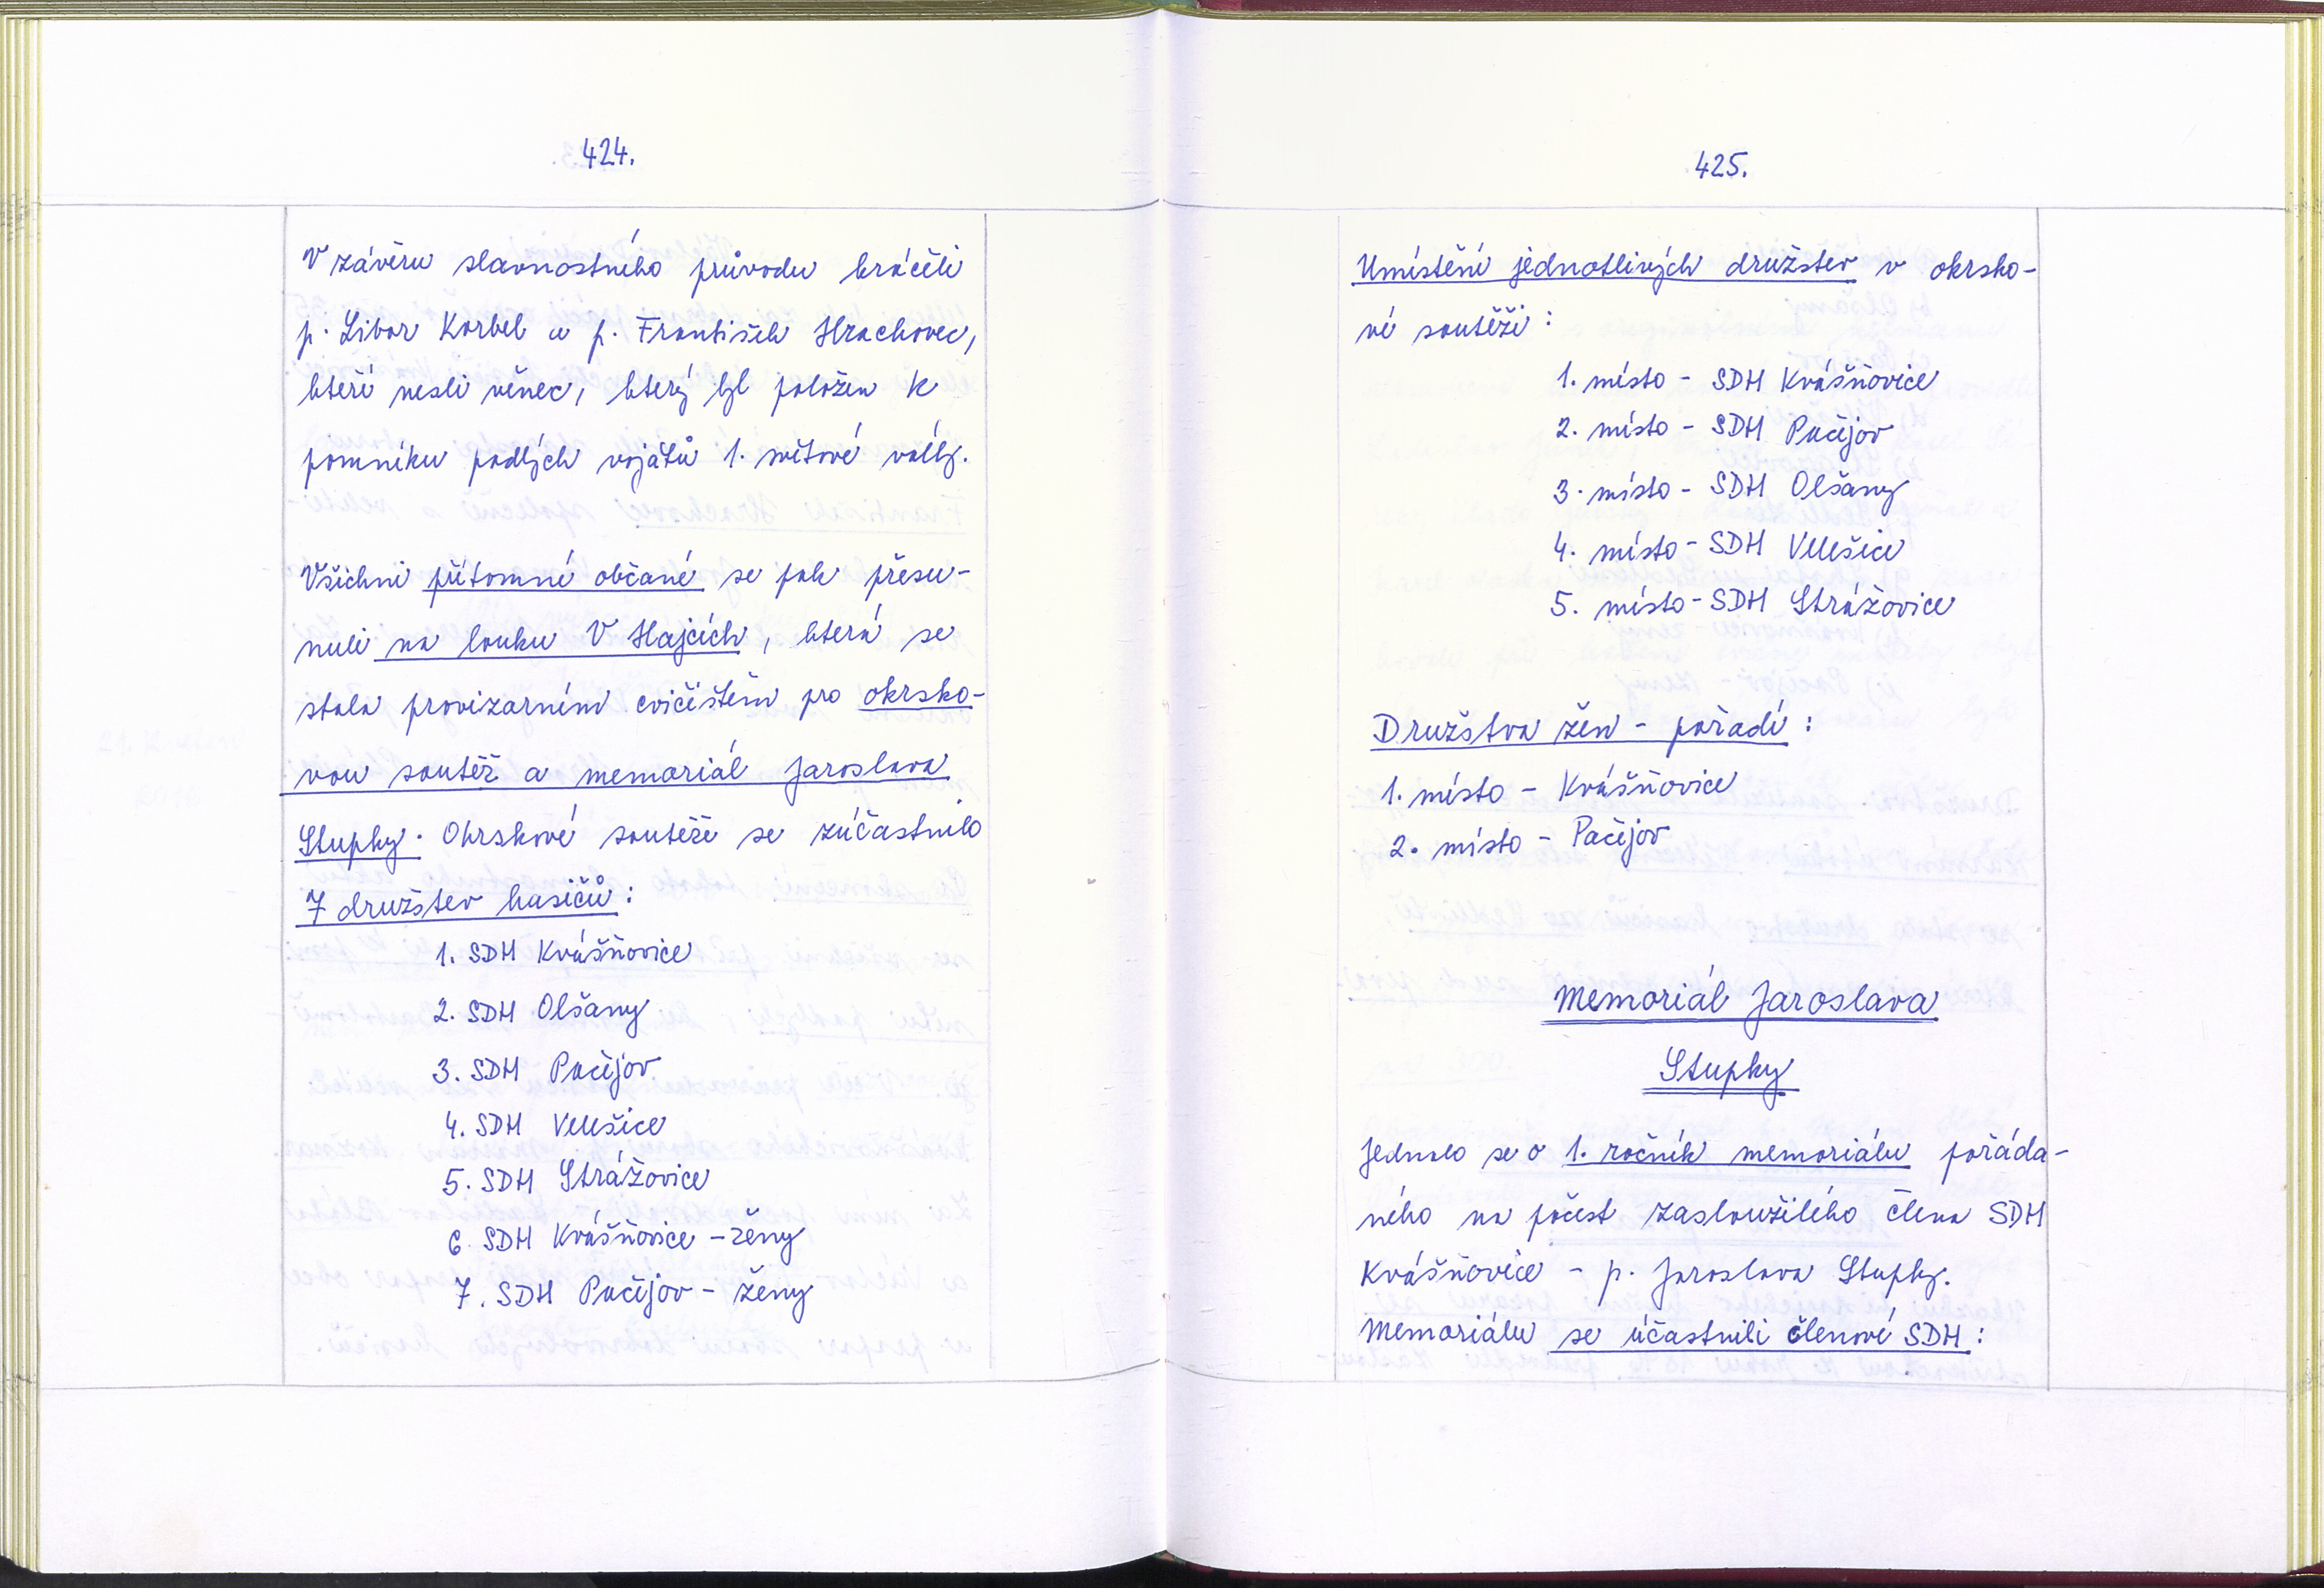 424.
V závěru slavnostního průvodu kráčeli
p. Libor Korbel a p. František Hrachovec,
kteří nesli věnec, který byl položen k
pomníku padlých vojáků 1. světové války.
Všichni přítomné občané se pak přesu-
nuli na louku V Hajcích, která se
stala provizorním cvičištěm pro okrsko-
vou soutěž a memoriál Jaroslava
Stupky. Okrskové soutěže se zúčastnilo
7 družstev hasičů:
1. SDH Kvášňovice
2. SDH Olšany
3. SDH Pačejov
4. SDH Velešice
5. SDH Strážovice
6. SDH Kvášňovice - ženy
7. SDH Pačejov - ženy
425.
Umístění jednotlivých družstev v okrsko-
vé soutěži:
1. místo - SDH Kvášňovice
2. místo - SDH Pačejov
3. místo - SDH Olšany
4. místo - SDH Velešice
5. místo - SDH Strážovice
Družstva žen - pořadí:
1. místo - Kvášňovice
2. místo - Pačejov
Memoriál Jaroslava
Stupky
Jednalo se o 1. ročník memoriálu pořáda-
ného na počest zasloužilého člena SDH
Kvášňovice - p. Jaroslava Stupky.
Memoriálu se účastnili členové SDH: